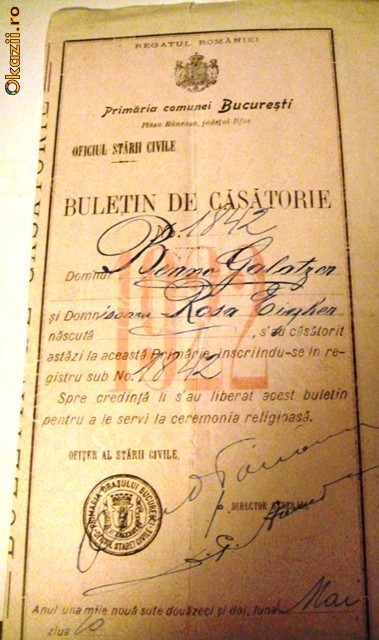 Okazii.ro
REGATUL ROMÂNIEI
Primăria comunei București
OFICIUL STĂRII CIVILE
BULETIN DE CĂSĂTORIE
No. 1842
1922
Domnul Benno Galatzer
și Domnișoara Rosa
născută s'au căsătorit
astăzi la această Primărie, înscriindu-se în re-
gistru sub No. 1842
Spre credință li s'au liberat acest buletin
pentru a le servi la ceremonia religioasă.
OFIȚER AL STĂRII CIVILE,
DIRECTOR
PRIMĂRIA ORAȘULUI BUCUREȘTI
OFICIUL STĂREI CIVILE
Anul una mie nouă sute douăzeci și doi, luna Mai
ziua 10